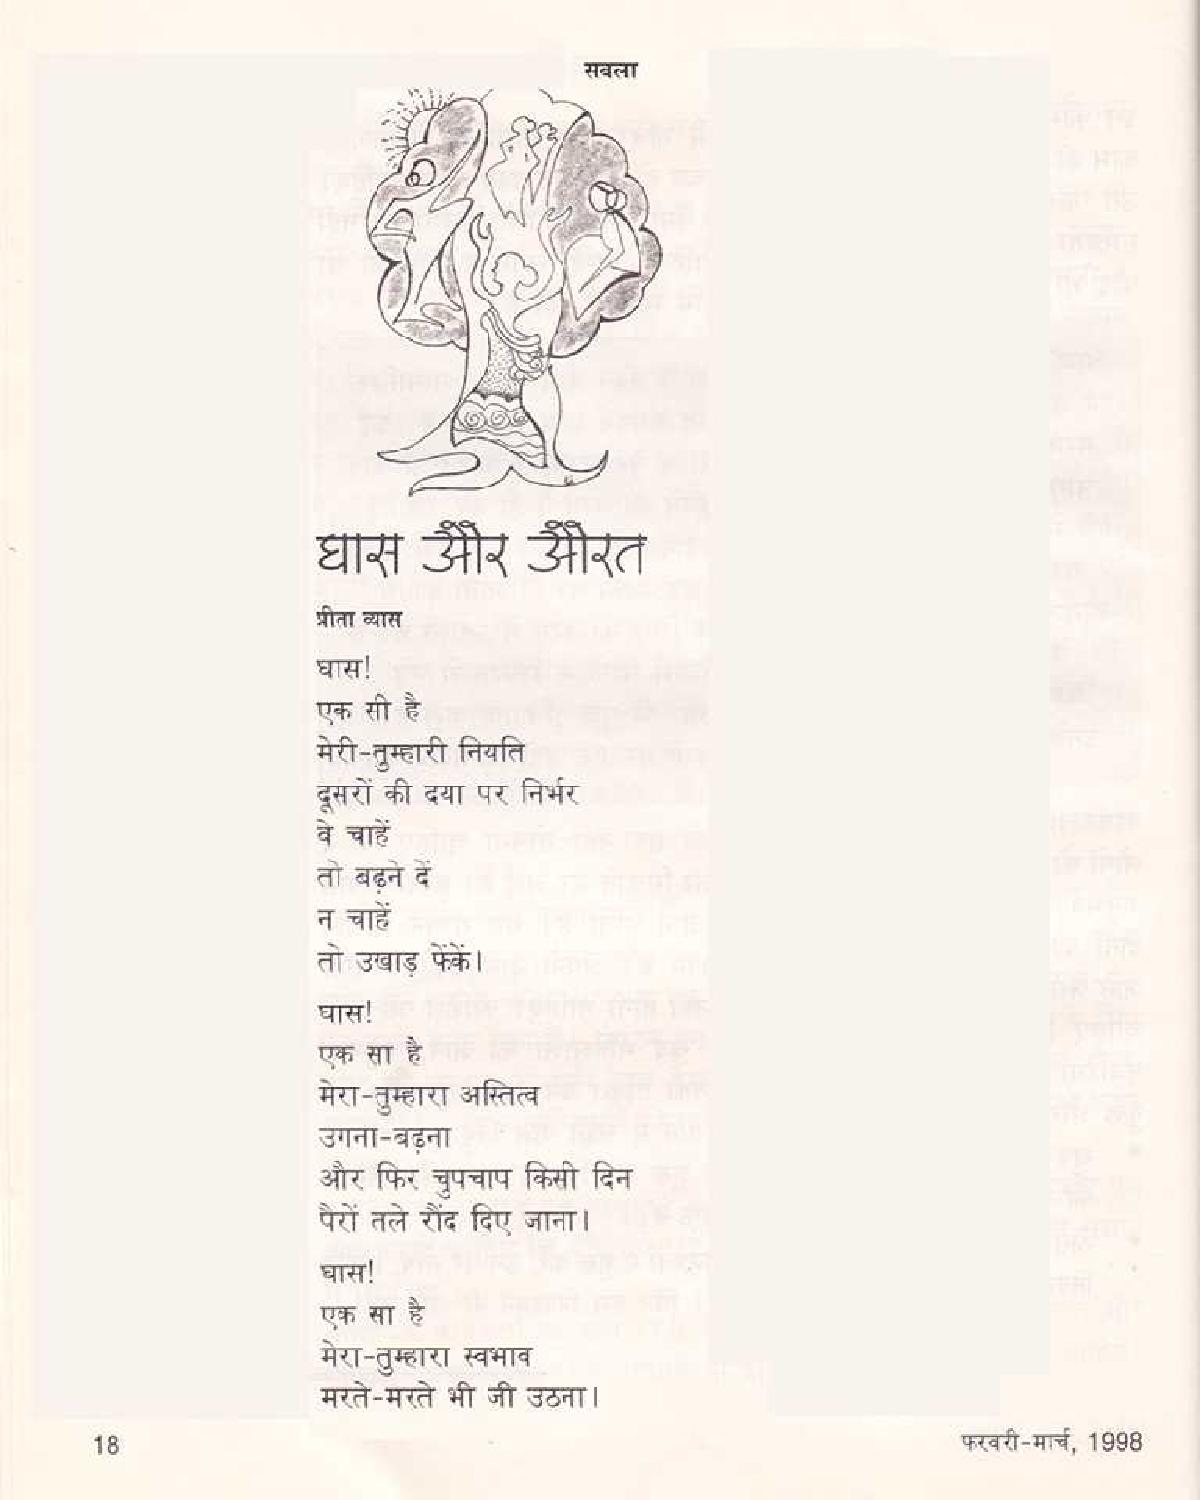 सबला
घास और औरत
प्रीता व्यास
घास!
एक सी है
मेरी-तुम्हारी नियति
दूसरों की दया पर निर्भर
वे चाहें
तो बढ़ने दें
न चाहें
तो उखाड़ फेंकें।
घास!
एक सा है
मेरा-तुम्हारा अस्तित्व
उगना-बढ़ना
और फिर चुपचाप किसी दिन
पैरों तले रौंद दिए जाना।
घास!
एक सा है
मेरा-तुम्हारा स्वभाव
मरते-मरते भी जी उठना।
18
फरवरी-मार्च, 1998